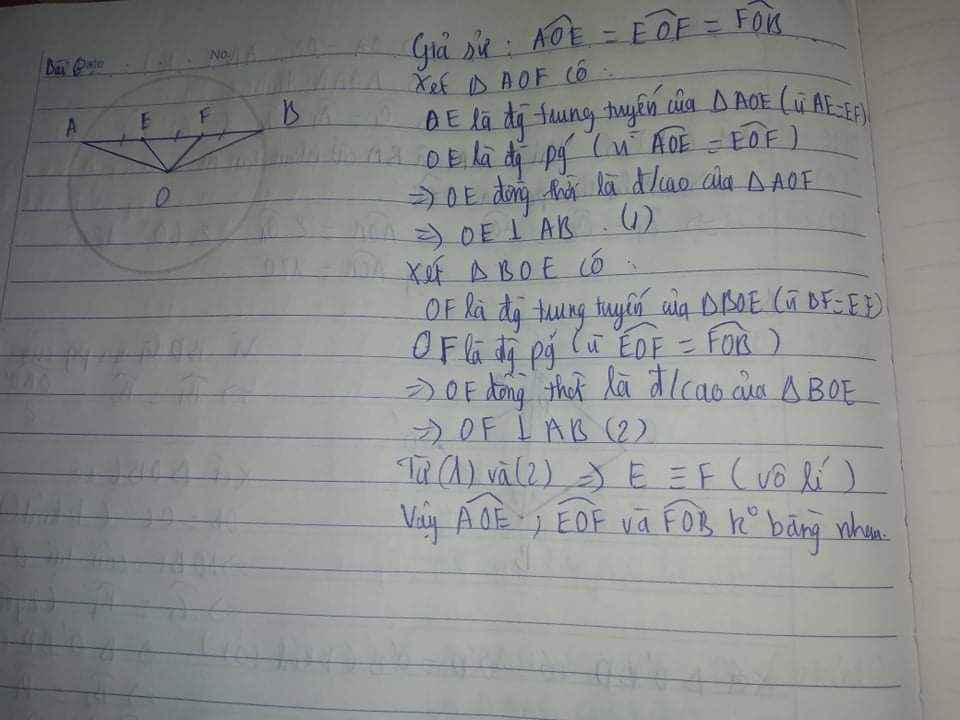 Bài 8: No.
A E F B
O
Giả sử : AOE = EOF = FOB
Xét Δ AOF có :
OE là đg trung tuyến của Δ AOE (vì AE=EF)
OE là đg pg (vì AOE = EOF)
=> OE đồng thời là đ/cao của Δ AOF
=> OE ⊥ AB . (1)
Xét Δ BOE có :
OF là đg trung tuyến của ΔBOE (vì BF=EF)
OF là đg pg (vì EOF = FOB)
=> OF đồng thời là đ/cao của Δ BOE
=> OF ⊥ AB (2)
Từ (1) và (2) => E ≡ F (vô lí)
Vậy AOE ; EOF và FOB k° bằng nhau.